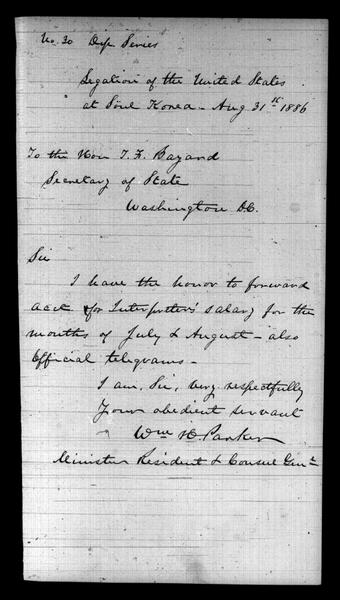 No. 30 Dip Series
Legation of the United States
at Söul Korea - Aug 31st 1886
To the Hon T. F. Bayard
Secretary of State
Washington D.C.
Sir
I have the honor to forward
acct for Interpreter's salary for the
months of July & August - also
Official telegrams -
I am, Sir, very respectfully
Your obedient servant
Wm H. Parker
Minister Resident & Consul Genl